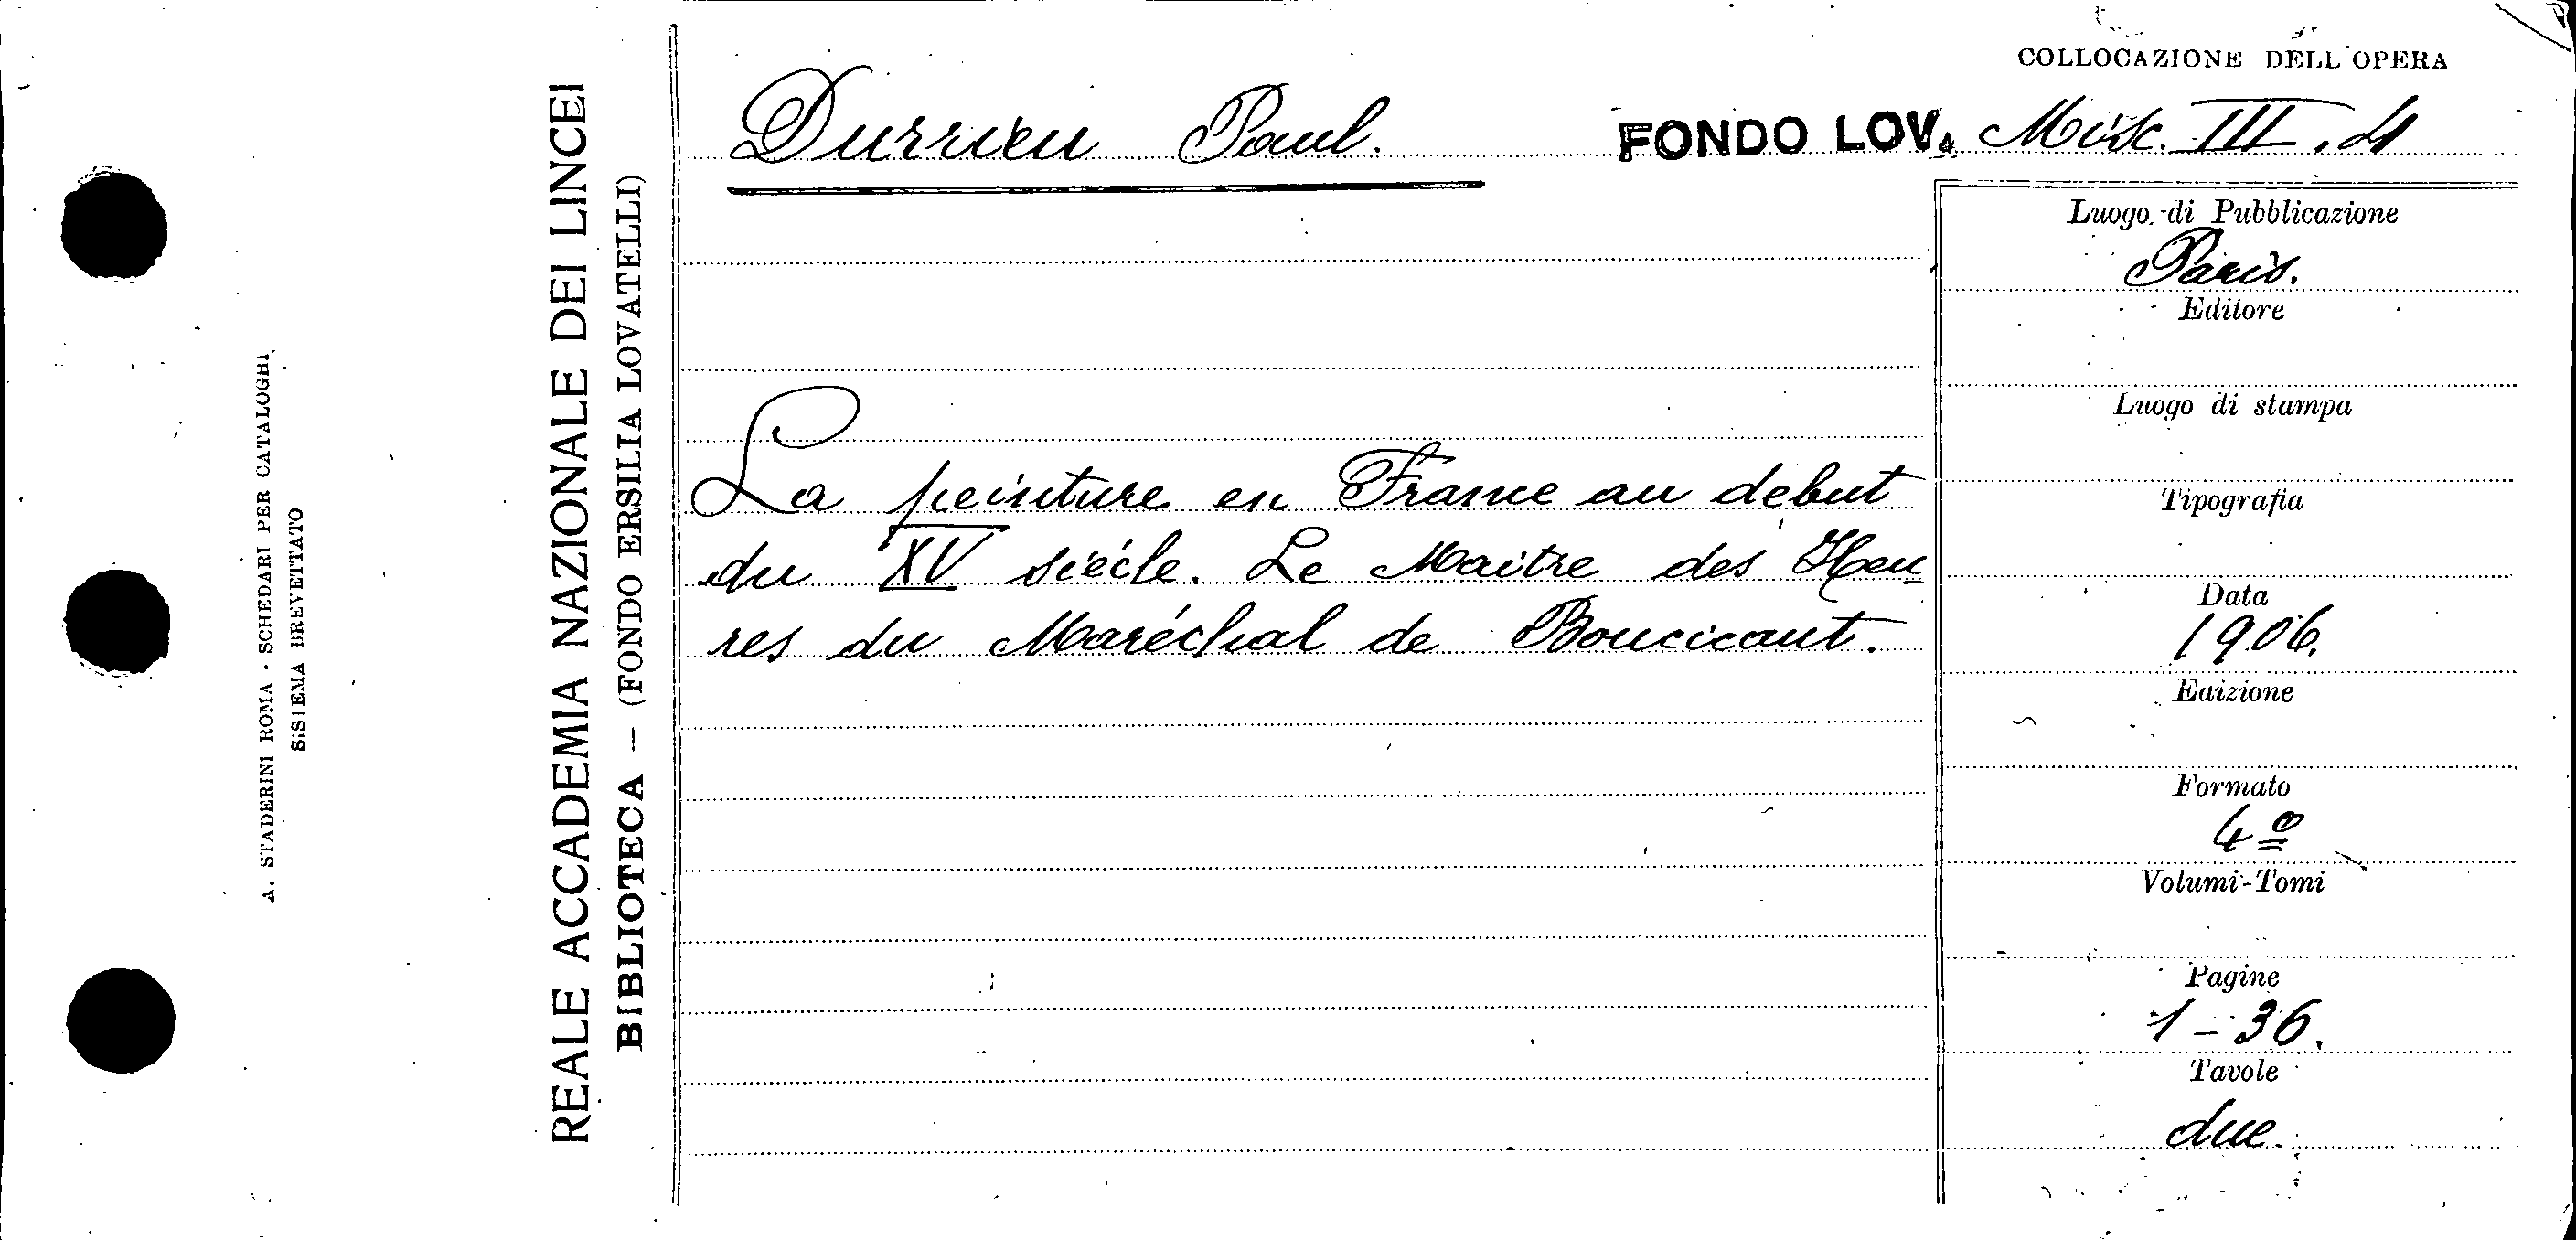 COLLOCAZIONE DELL'OPERA
Durrieu Paul.
FONDO LOV. Misc. III. 21
La peinture en France au debut
du XV siécle. Le Maitre des Heu
res du Maréchal de Boucicaut.
Luogo di Pubblicazione
Paris.
Editore
Luogo di stampa
Tipografia
Data
1906.
Edizione
Formato
4º
Volumi-Tomi
Pagine
1-36.
Tavole
due.
REALE ACCADEMIA NAZIONALE DEI LINCEI
BIBLIOTECA — (FONDO ERSILIA LOVATELLI)
A. STADERINI ROMA - SCHEDARI PER CATALOGHI
SISIEMA BREVETTATO